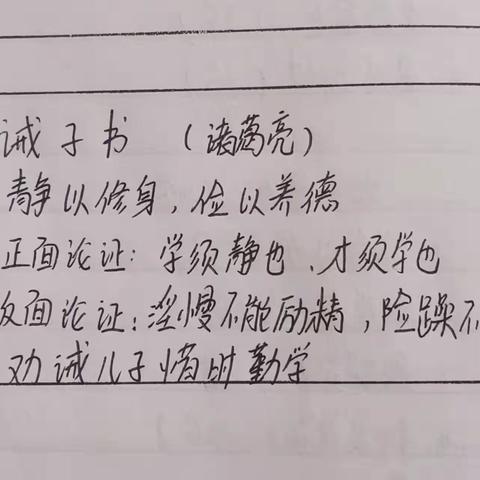 诫子书 （诸葛亮）
静以修身，俭以养德
正面论证：学须静也、才须学也
反面论证：淫慢不能励精，险躁不
劝诫儿子惜时勤学